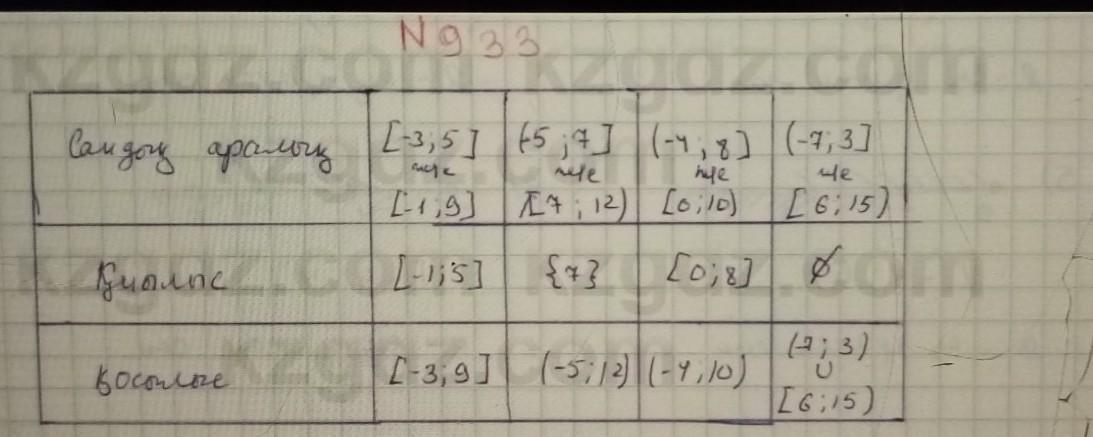 N933
Сандық аралық
[-3;5]
және
[-1;9]
(-5;7]
және
[7;12)
(-4;8]
және
[0;10)
(-7;3]
және
[6;15)
Қиылыс
[-1;5]
{7}
[0;8]
∅
Қосылыс
[-3;9]
(-5;12)
(-4;10)
(-7;3)
∪
[6;15)
kzgdz.com kzgdz.com